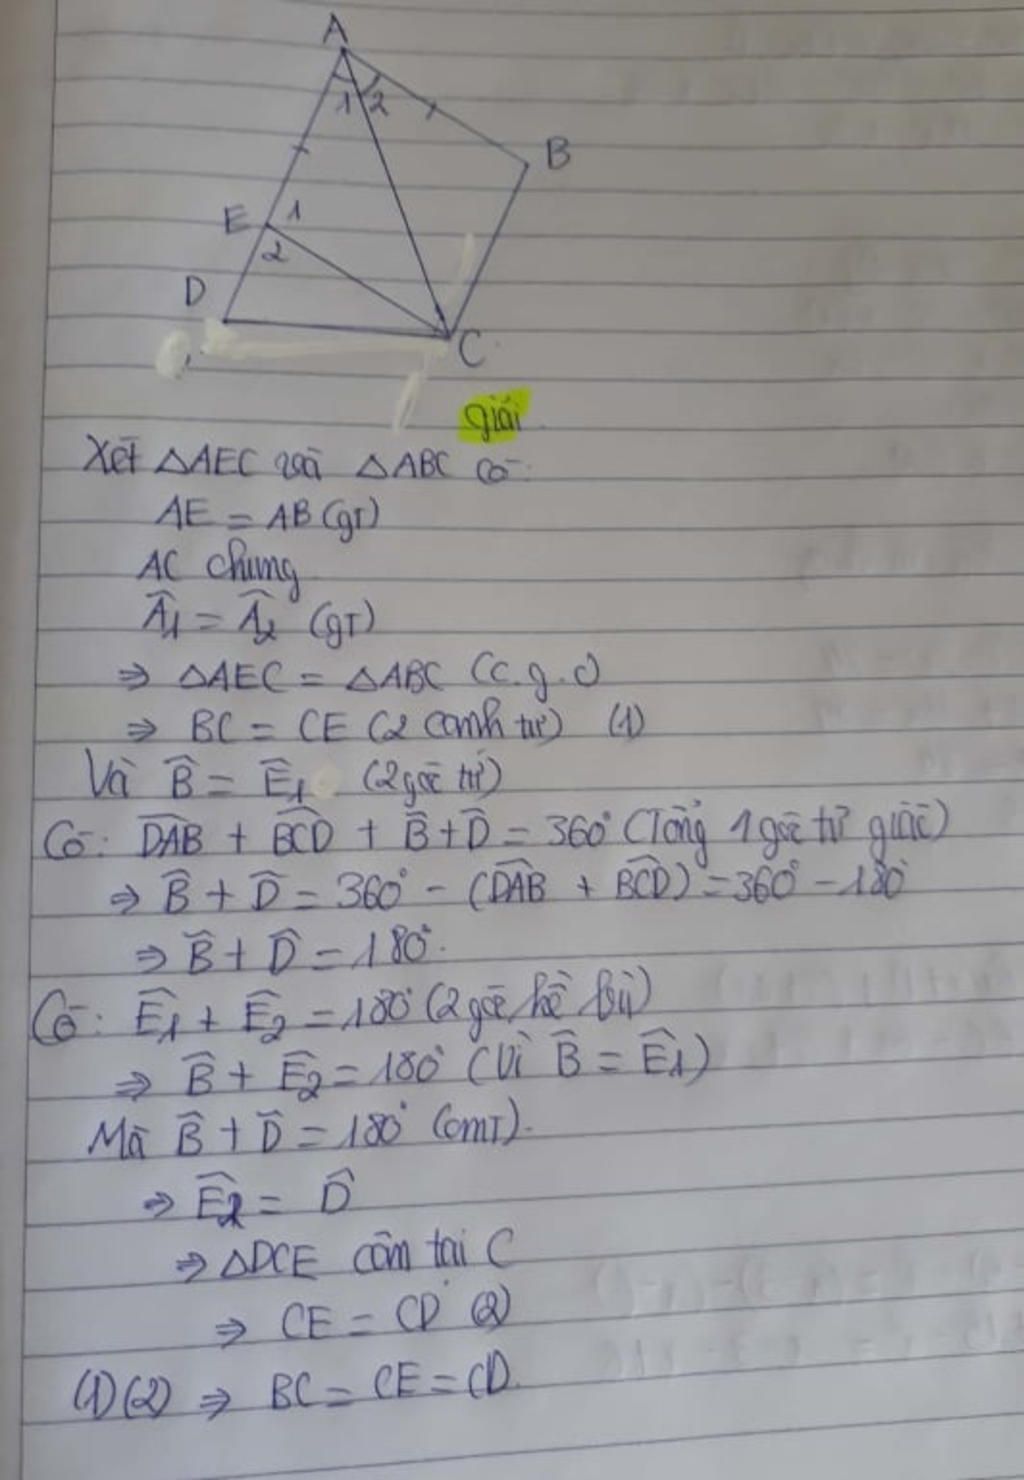 A
1 2
B
E 1
2
D
C
giải
Xét △AEC và △ABC có:
AE = AB (gt)
AC chung
Â1 = Â2 (gt)
⇒ △AEC = △ABC (c.g.c)
⇒ BC = CE (2 cạnh tư) (1)
Và B̂ = Ê1 (2 góc tứ)
Có: D͡AB + B͡CD + B̂ + D̂ = 360° (Tổng 1 góc tứ giác)
⇒ B̂ + D̂ = 360° - (D͡AB + B͡CD) = 360° - 180°
⇒ B̂ + D̂ = 180°.
Có: Ê1 + Ê2 = 180° (2 góc kề bù)
⇒ B̂ + Ê2 = 180° (Vì B̂ = Ê1)
Mà B̂ + D̂ = 180° (cmt).
⇒ Ê2 = D̂
⇒ △DCE cân tại C
⇒ CE = CD (2)
(1)(2) ⇒ BC = CE = CD.